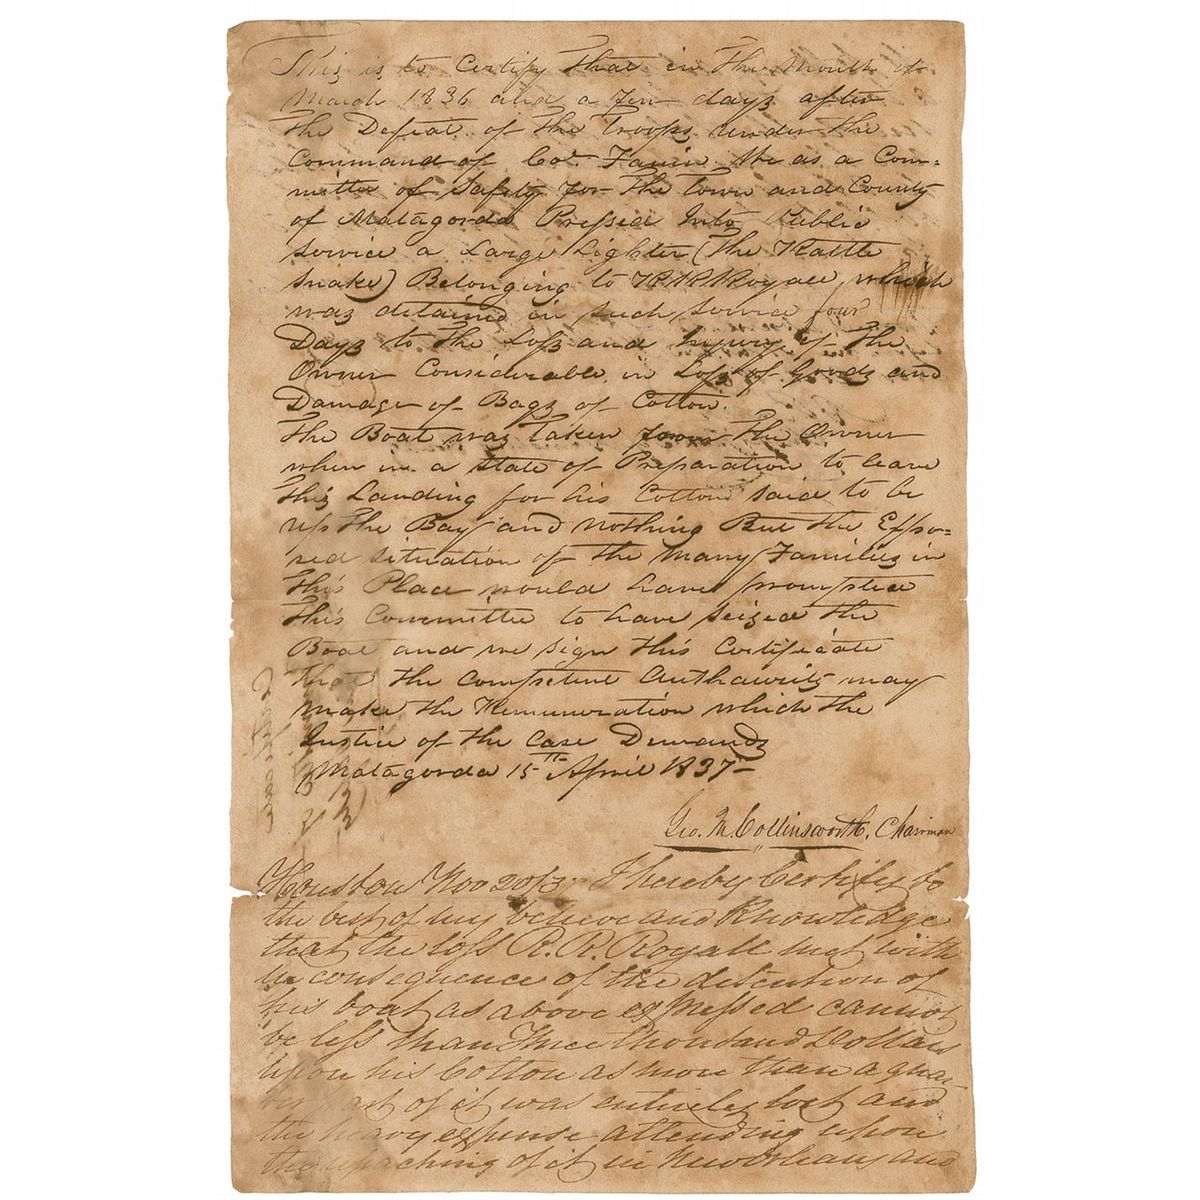 This is to Certify that in the Month of
March 1836 and a few days after
the Defeat of the troops under the
Command of Col. Fanin We as a Com-
mittee of Safety for the Town and County
of Matagorda Pressed Into Public
Service a Large Lighter (The Rattle
Snake) Belonging to R R Royall, which
was detained in such service four
Days to the Loss and Injury of the
Owner Considerable in Loss of Goods and
Damage of Bags of Cotton.
The Boat was taken from the Owner
when in a state of Preparation to leave
this Landing for his Cotton said to be
up the Bay and nothing But the Expo-
sed situation of the Many Families in
this Place would have prompted
this Committee to have seized the
Boat and we sign this Certificate
that the competent Authawrity may
make the Remuneration which the
Justice of the Case Demands
Matagorda 15th April 1837-
Geo. M. Collinsworth, Chairman
Houston Nov 20 I hereby Certify to
the best of my believe and Knowledge
that the loss R. R. Royall met with
in consequence of the detention of
his boat as above expressed cannot
be less than Three thousand Dollars
upon his Cotton as more than a quar-
ter part of it was entirely lost and
the heavy expense attending upon
the repacking of it in New Orleans and